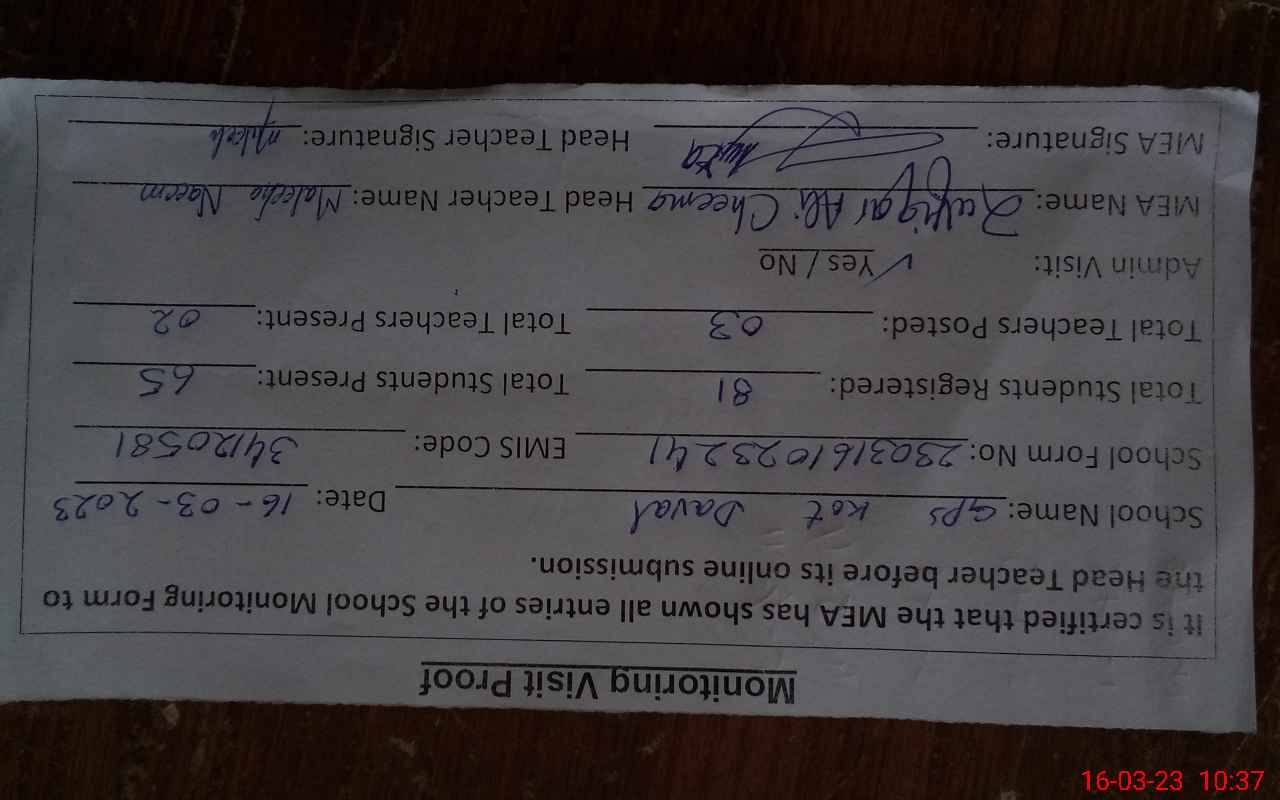 Monitoring Visit Proof
It is certified that the MEA has shown all entries of the School Monitoring Form to
the Head Teacher before its online submission.
School Name: GPS Kot Daval Date: 16-03-2023
School Form No: 2303161023241 EMIS Code: 34120581
Total Students Registered: 81 Total Students Present: 65
Total Teachers Posted: 03 Total Teachers Present: 02
Admin Visit: ✓ Yes / No
MEA Name: Zulfiqar Ali Cheema Head Teacher Name: Maleeha Naeem
MEA Signature: Head Teacher Signature:
16-03-23 10:37